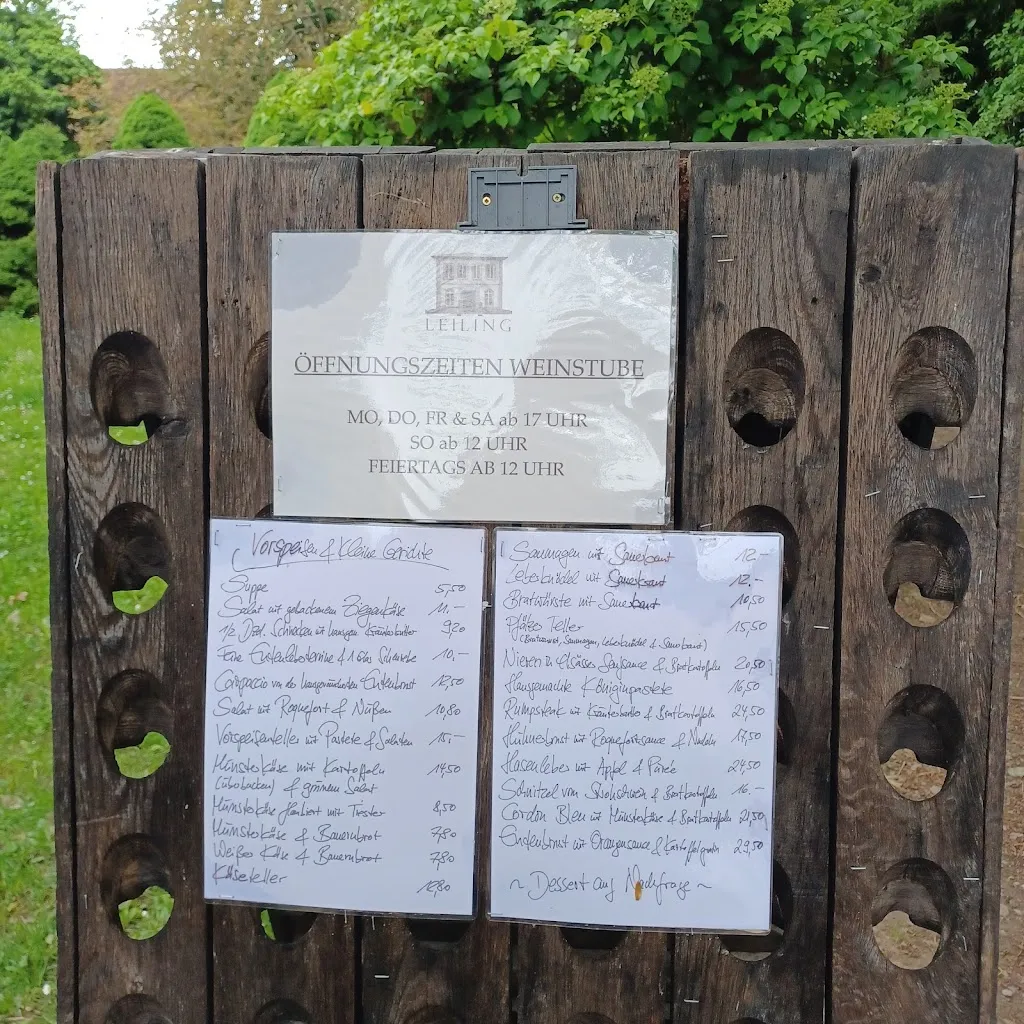 LEILING
ÖFFNUNGSZEITEN WEINSTUBE
MO, DO, FR & SA ab 17 UHR
SO ab 12 UHR
FEIERTAGS AB 12 UHR
Vorspeisen & Kleine Gerichte
Suppe 5,50
Salat mit gebackenem Ziegenkäse 11.-
1/2 Dzd. Schnecken mit hausgem. Kräuterbutter 9,20
Feine Entenleberterrine & 1 Glas 10,-
Carpaccio von der hausgeräucherten Entenbrust 12,50
Salat mit Roquefort & Nüßen 10,80
Vorspeisenteller mit Pastete & Salaten 15,-
Münsterkäse mit Kartoffeln 14,50
(überbacken) & grünem Salat
Münsterkäse flambiert mit Trester 8,50
Münsterkäse & Bauernbrot 7,80
Weißer Käse & Bauernbrot 7,80
Käseteller 12,80
Saumagen mit Sauerkraut 12.-
Leberknödel mit Sauerkraut 12.-
Bratwürste mit Sauerkraut 10,50
Pfälzer Teller 15,50
(Bratwurst, Saumagen, Leberknödel & Sauerkraut)
Nieren in Elsässer Senfsauce & Bratkartoffeln 20,50
Hausgemachte Königinpastete 16,50
Rumpsteak mit Kräuterbutter & Bratkartoffeln 24,50
Hühnerbrust mit Roquefortsauce & Nudeln 17,50
Hasenleber mit Apfel & Pürée 21,50
Schnitzel vom Strohschwein & Bratkartoffeln 16.-
Cordon Bleu mit Münsterkäse & Bratkartoffeln 21,50
Entenbrust mit Orangensauce & Kartoffelgratin 29,50
~ Dessert auf Nachfrage ~